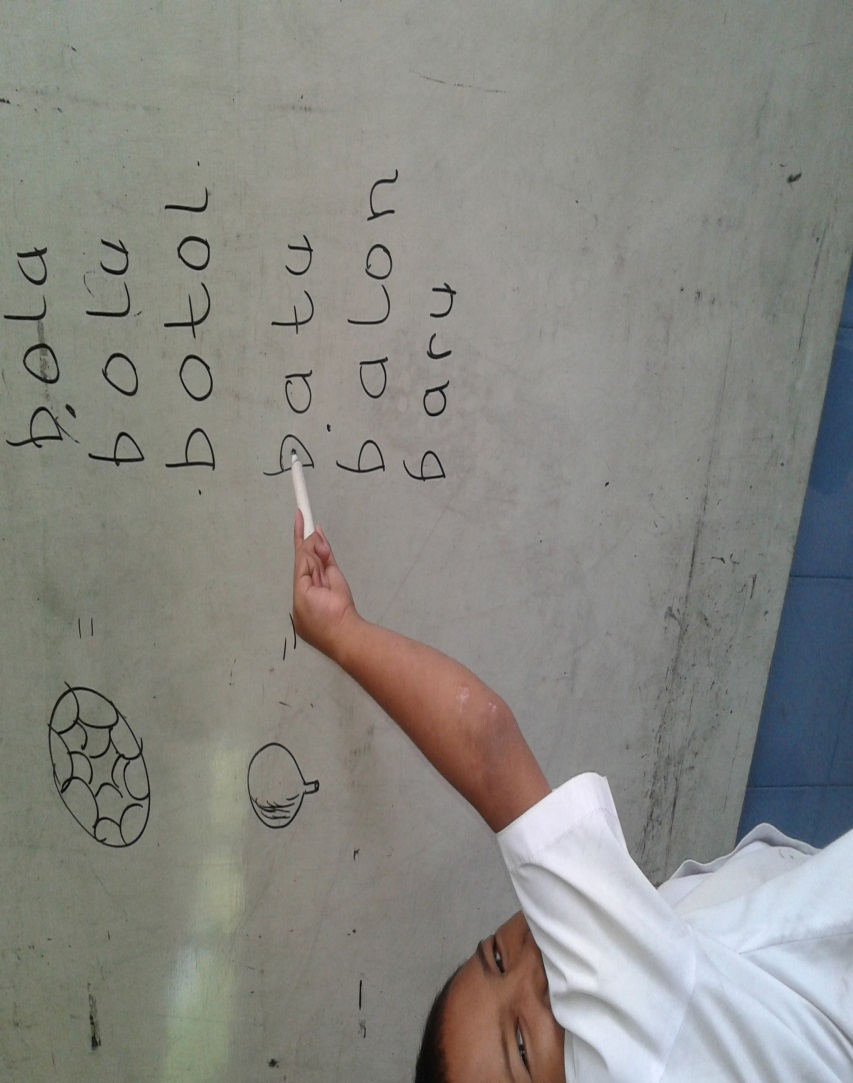 bola
= bolu
botol
= batu
balon
baru